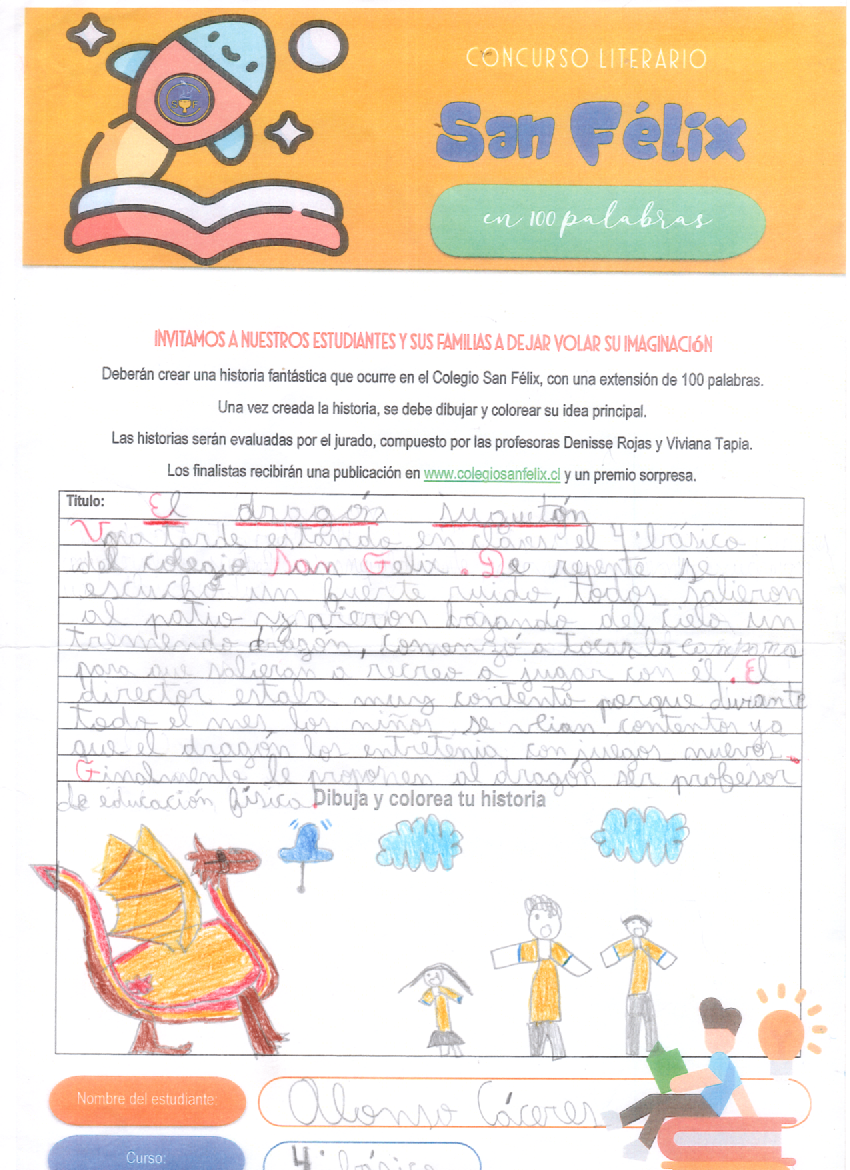 CONCURSO LITERARIO
San Félix
en 100 palabras
INVITAMOS A NUESTROS ESTUDIANTES Y SUS FAMILIAS A DEJAR VOLAR SU IMAGINACIÓN
Deberán crear una historia fantástica que ocurre en el Colegio San Félix, con una extensión de 100 palabras.
Una vez creada la historia, se debe dibujar y colorear su idea principal.
Las historias serán evaluadas por el jurado, compuesto por las profesoras Denisse Rojas y Viviana Tapia.
Los finalistas recibirán una publicación en www.colegiosanfelix.cl y un premio sorpresa.
Título: El dragón juguetón
Una tarde estando en clases el 4° básico
del colegio San Felix. De repente se
escuchó un fuerte ruido, todos salieron
al patio y vieron bajando del cielo un
tremendo dragón, comenzó a tocar la campana
para que salieran a recreo a jugar con él. El
director estaba muy contento porque durante
todo el mes los niños se veian contentos ya
que el dragón los entretenia con juegos nuevos.
Finalmente le proponen al dragón ser profesor
de educación física.
Dibuja y colorea tu historia
Nombre del estudiante: Alonso Cáceres
Curso: 4° básico